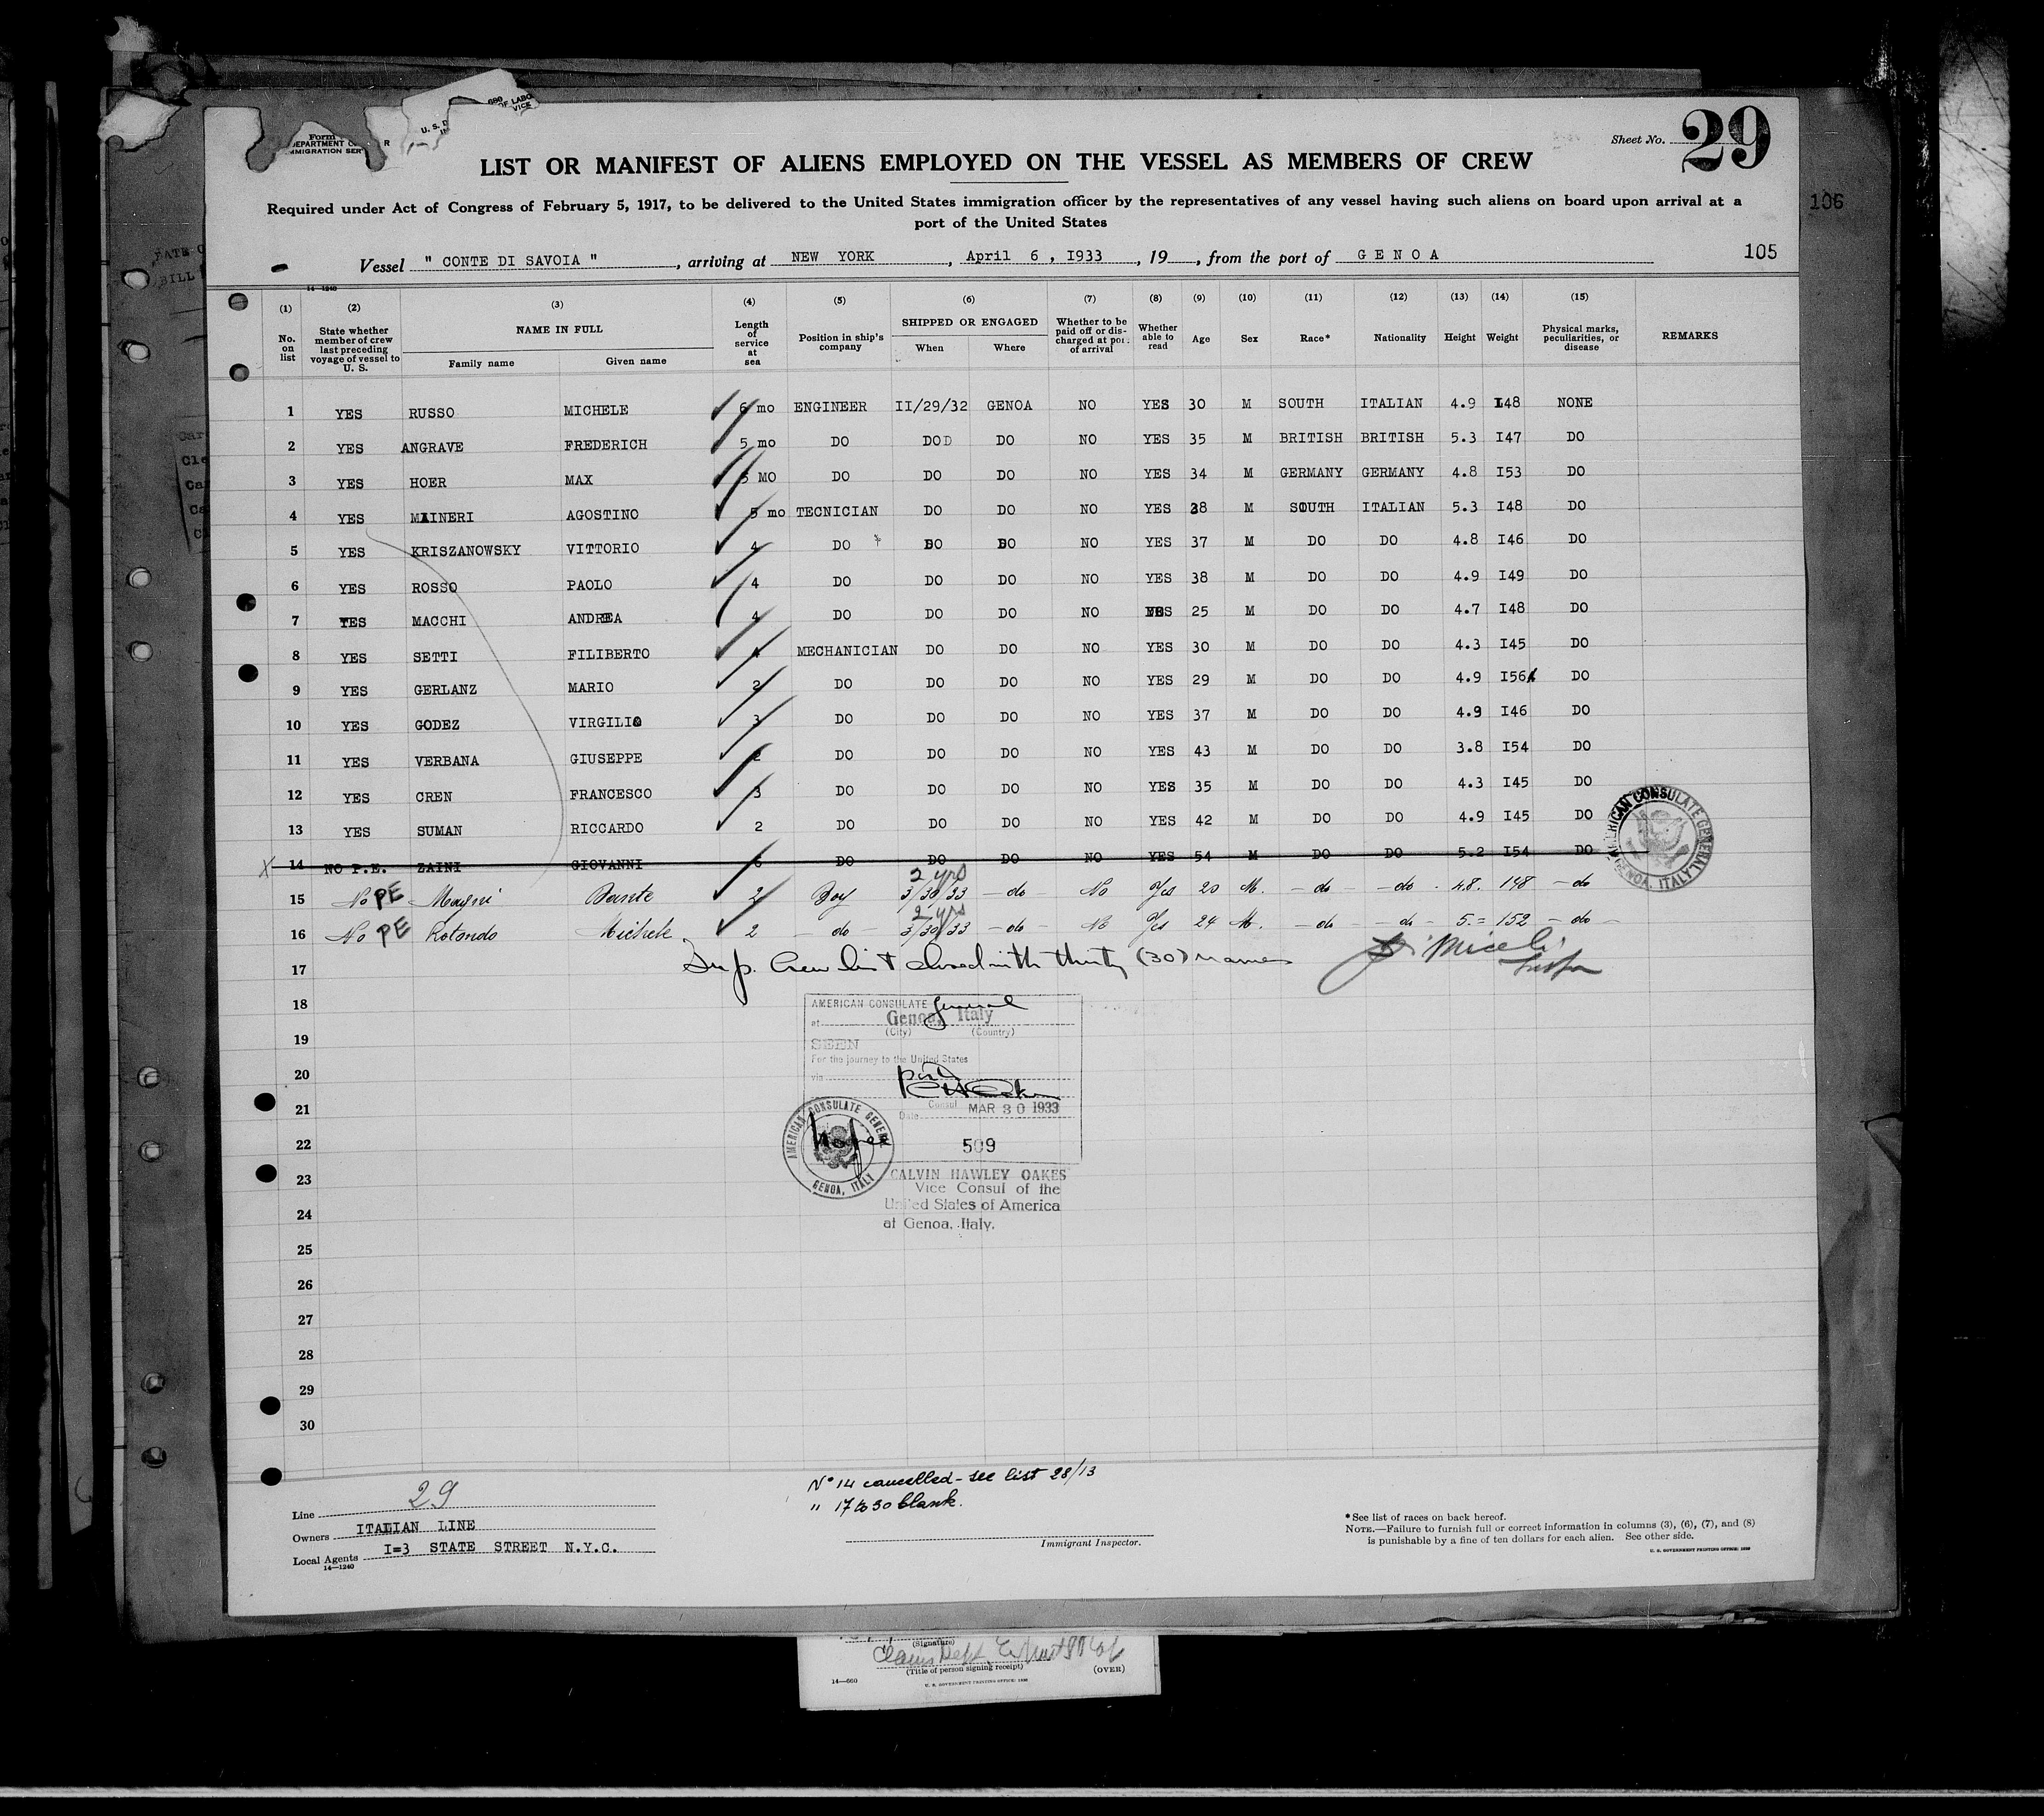 Sheet No. 29
Form
DEPARTMENT O R
IMMIGRATION SER
U. S. D
OF LABO
VICE
LIST OR MANIFEST OF ALIENS EMPLOYED ON THE VESSEL AS MEMBERS OF CREW
Required under Act of Congress of February 5, 1917, to be delivered to the United States immigration officer by the representatives of any vessel having such aliens on board upon arrival at a
port of the United States
106
105
Vessel " CONTE DI SAVOIA ", arriving at NEW YORK, April 6 , I933, 19 , from the port of G E N O A
14-1240
(1) (2) (3) (4) (5) (6) (7) (8) (9) (10) (11) (12) (13) (14) (15)
No. on list
State whether member of crew last preceding voyage of vessel to U. S.
NAME IN FULL
Family name Given name
Length of service at sea
Position in ship's company
SHIPPED OR ENGAGED
When Where
Whether to be paid off or discharged at port of arrival
Whether able to read
Age Sex Race* Nationality Height Weight
Physical marks, peculiarities, or disease
REMARKS
1 YES RUSSO MICHELE 6 mo ENGINEER II/29/32 GENOA NO YES 30 M SOUTH ITALIAN 4.9 I48 NONE
2 YES ANGRAVE FREDERICH 5 mo DO DO DO NO YES 35 M BRITISH BRITISH 5.3 I47 DO
3 YES HOER MAX 5 MO DO DO DO NO YES 34 M GERMANY GERMANY 4.8 I53 DO
4 YES MAINERI AGOSTINO 5 mo TECNICIAN DO DO NO YES 38 M SOUTH ITALIAN 5.3 I48 DO
5 YES KRISZANOWSKY VITTORIO 4 DO DO DO NO YES 37 M DO DO 4.8 I46 DO
6 YES ROSSO PAOLO 4 DO DO DO NO YES 38 M DO DO 4.9 I49 DO
7 YES MACCHI ANDREA 4 DO DO DO NO YES 25 M DO DO 4.7 I48 DO
8 YES SETTI FILIBERTO 4 MECHANICIAN DO DO NO YES 30 M DO DO 4.3 I45 DO
9 YES GERLANZ MARIO 2 DO DO DO NO YES 29 M DO DO 4.9 I56 DO
10 YES GODEZ VIRGILIO 3 DO DO DO NO YES 37 M DO DO 4.9 I46 DO
11 YES VERBANA GIUSEPPE 2 DO DO DO NO YES 43 M DO DO 3.8 I54 DO
12 YES CREN FRANCESCO 3 DO DO DO NO YES 35 M DO DO 4.3 I45 DO
13 YES SUMAN RICCARDO 2 DO DO DO NO YES 42 M DO DO 4.9 I45 DO
X 14 NO P.E. ZAINI GIOVANNI 6 DO DO DO NO YES 54 M DO DO 5.2 I54 DO
2 yrs
15 No PE Magni Dante 2 Boy 3/30/33 - do - No Yes 20 M. - do - - do - 4.8. 148 - do
2 yrs
16 No PE Rotondo Michele 2 - do - 3/30/33 - do - No Yes 24 M. - do - do - 5.= 152 - do -
17 Sup. Crew list closed with thirty (30) names
18
19
20
21
22
23
24
25
26
27
28
29
30
AMERICAN CONSULATE General
at Genoa, Italy
(City) (Country)
SEEN
For the journey to the United States
via
Consul
Date MAR 30 1933
509
AMERICAN CONSULATE GENERAL
GENOA, ITALY
No fee
CALVIN HAWLEY OAKES
Vice Consul of the
United States of America
at Genoa, Italy.
AMERICAN CONSULATE GENERAL
GENOA, ITALY
Nº 14 cancelled - see list 28/13
" 17 to 30 blank.
Line 29
Owners ITALIAN LINE
Local Agents I=3 STATE STREET N.Y.C.
14-1240
Immigrant Inspector.
*See list of races on back hereof.
NOTE.—Failure to furnish full or correct information in columns (3), (6), (7), and (8)
is punishable by a fine of ten dollars for each alien. See other side.
U. S. GOVERNMENT PRINTING OFFICE:
(Signature)
(Title of person signing receipt)
(OVER)
14—660
U. S. GOVERNMENT PRINTING OFFICE: